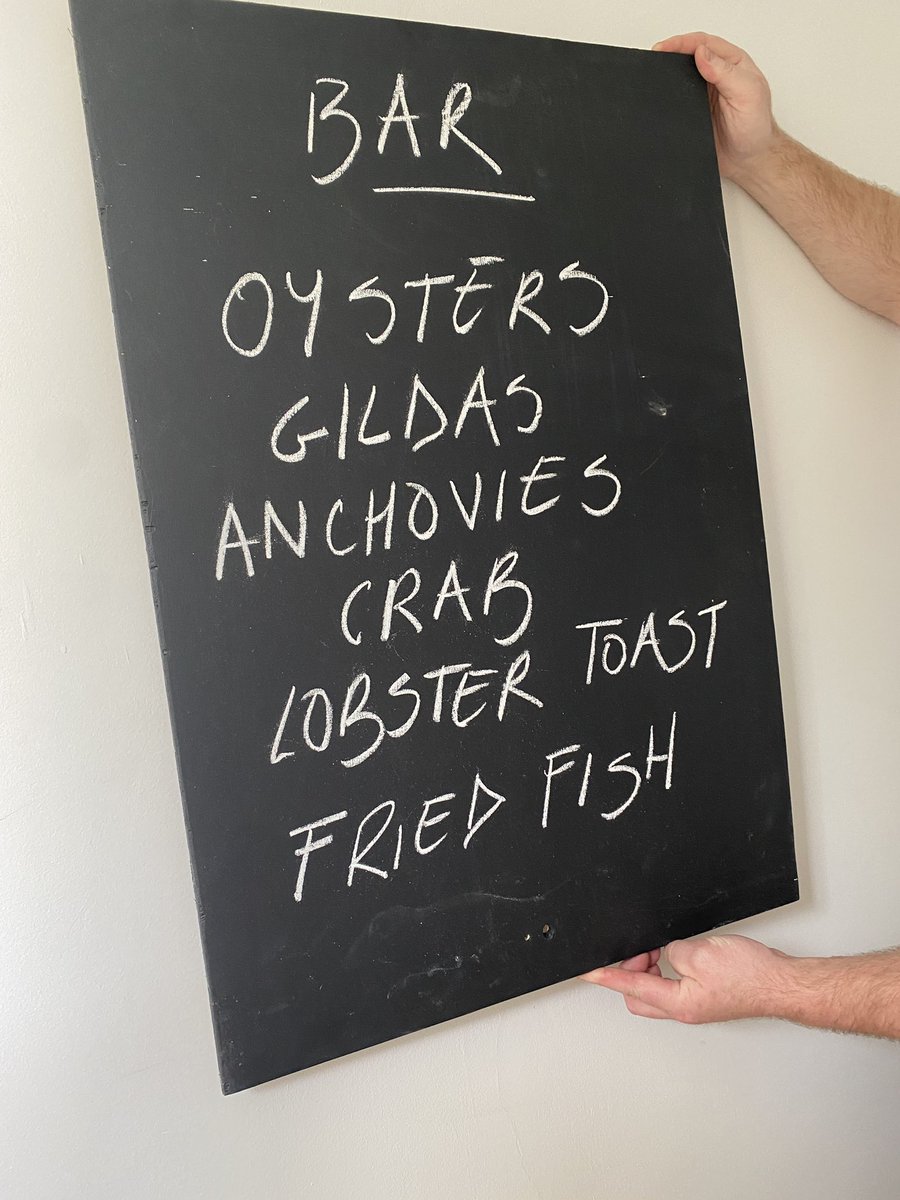 BAR
OYSTERS
GILDAS
ANCHOVIES
CRAB
LOBSTER TOAST
FRIED FISH